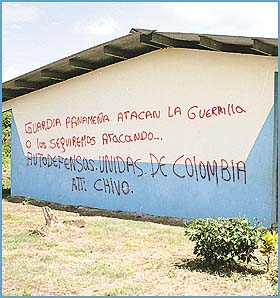 GUARDIA PANAMEÑA ATACAN LA GUERRILLA
O LOS SEGUIREMOS ATACANDO...
AUTODEFENSAS. UNIDAS. DE COLOMBIA
ATT: CHIVO.